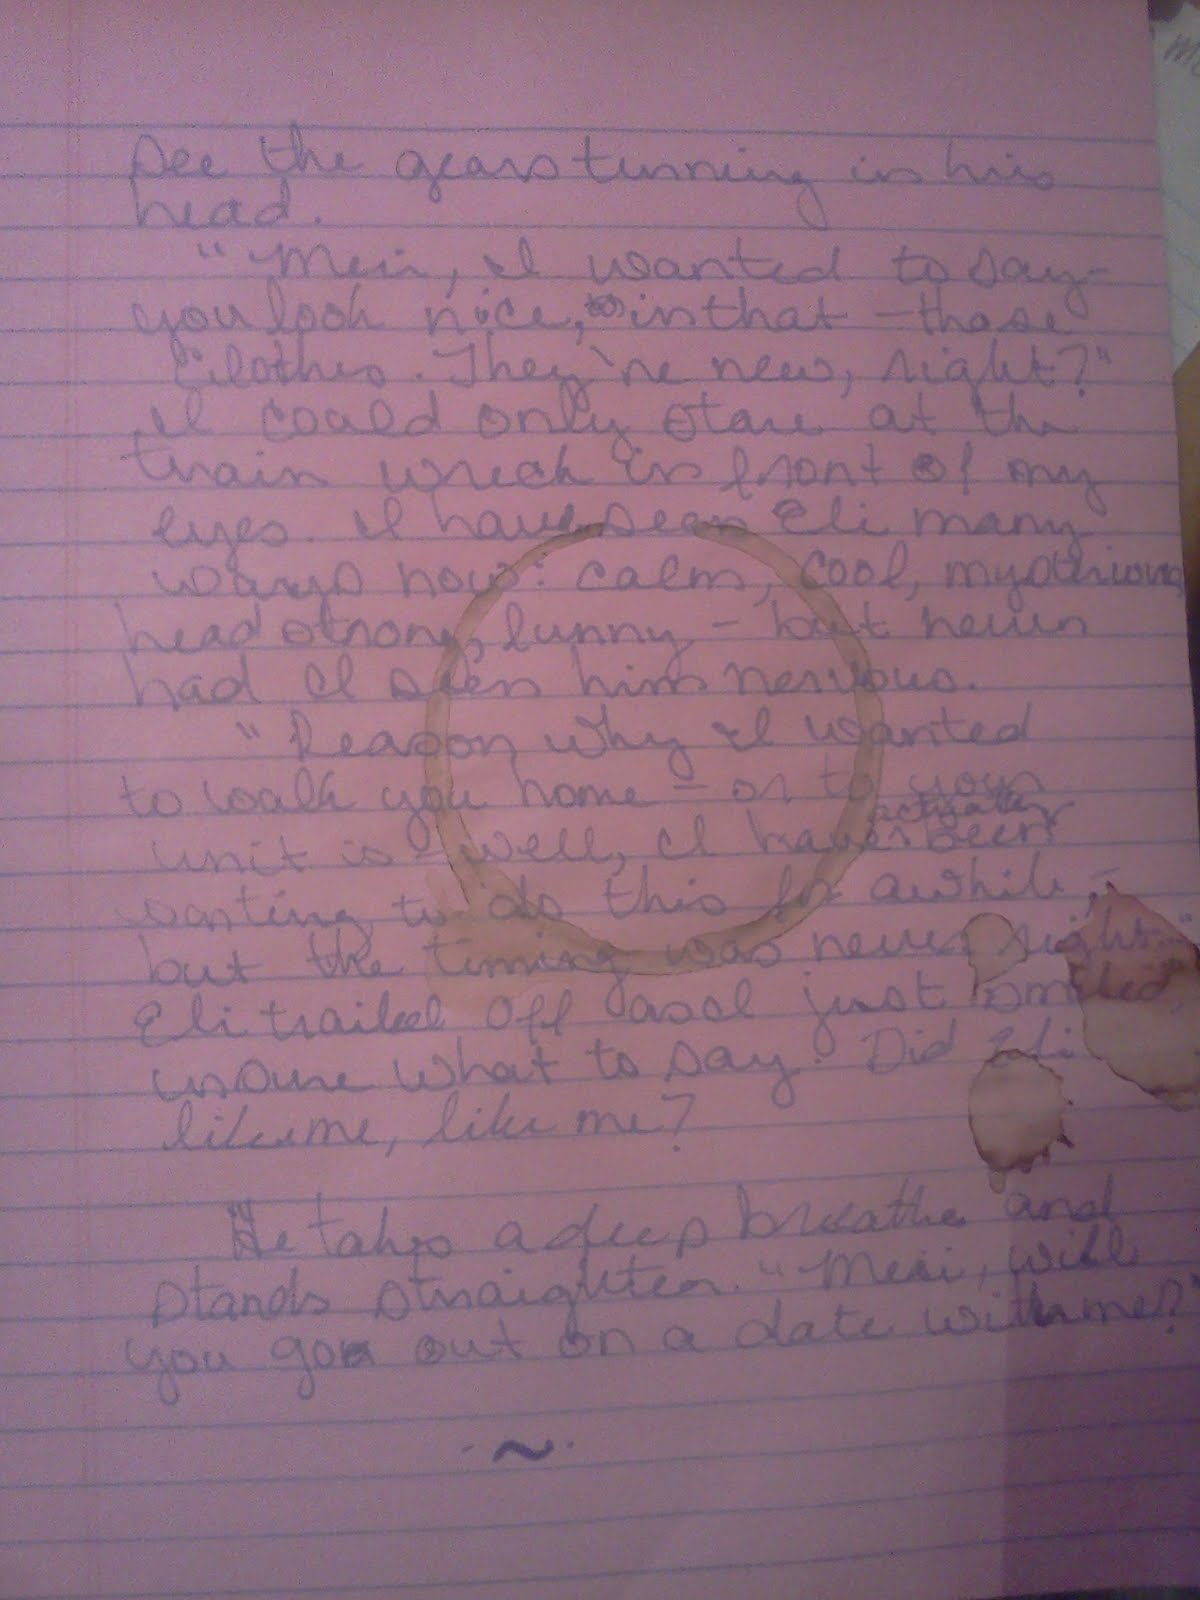 See the gears turning in his
head.
"Meri, I wanted to say-
you look nice, in that - those
clothes. They're new, right?"
I could only stare at the
train wreck in front of my
eyes. I have seen Eli many
ways now: calm, cool, mysterious,
head strong, funny, - but never
had I seen him nervous.
"Reason why I wanted
to walk you home - or to your
actually
unit is - well, I have been
wanting to do this for awhile -
but the timing was never right..."
Eli trailed off and just smiled,
unsure what to say. Did Eli
like me, like me?
He takes a deep breathe and
stands straighter. "Meri, will
you go out on a date with me?"
~